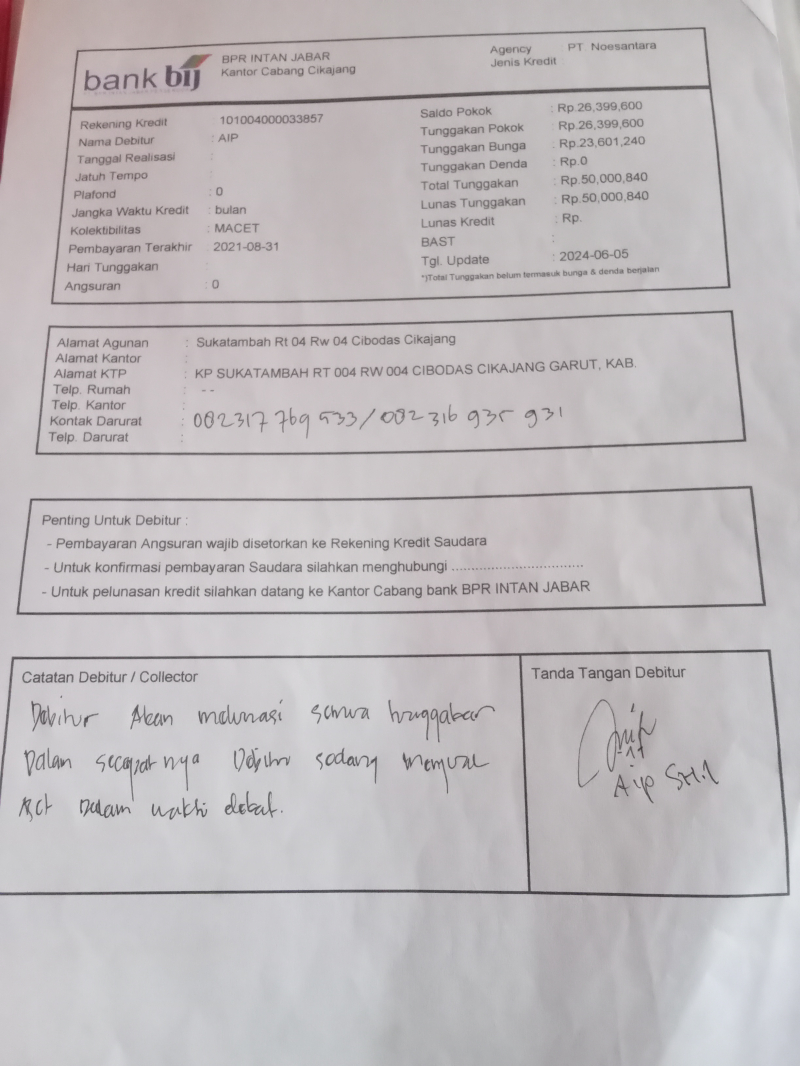 bank bij
BPR INTAN JABAR
Kantor Cabang Cikajang
Agency PT Noesantara
Jenis Kredit
Rekening Kredit : 101004000033857
Nama Debitur : AIP
Tanggal Realisasi :
Jatuh Tempo :
Plafond : 0
Jangka Waktu Kredit : bulan
Kolektibilitas : MACET
Pembayaran Terakhir 2021-08-31
Hari Tunggakan :
Angsuran : 0
Saldo Pokok : Rp.26,399,600
Tunggakan Pokok : Rp.26,399,600
Tunggakan Bunga : Rp.23,601,240
Tunggakan Denda : Rp.0
Total Tunggakan : Rp.50,000,840
Lunas Tunggakan : Rp.50,000,840
Lunas Kredit : Rp.
BAST :
Tgl. Update : 2024-06-05
*)Total Tunggakan belum termasuk bunga & denda berjalan
Alamat Agunan : Sukatambah Rt 04 Rw 04 Cibodas Cikajang
Alamat Kantor :
Alamat KTP : KP SUKATAMBAH RT 004 RW 004 CIBODAS CIKAJANG GARUT, KAB.
Telp. Rumah : --
Telp. Kantor :
Kontak Darurat : 082317 769 533/082316 935 931
Telp. Darurat :
Penting Untuk Debitur :
- Pembayaran Angsuran wajib disetorkan ke Rekening Kredit Saudara
- Untuk konfirmasi pembayaran Saudara silahkan menghubungi ..................................
- Untuk pelunasan kredit silahkan datang ke Kantor Cabang bank BPR INTAN JABAR
Catatan Debitur / Collector
Debitur Akan melunasi semua
Dalam secepatnya Debitur sedang menjual
Dalam waktu dekat.
Tanda Tangan Debitur
Aip